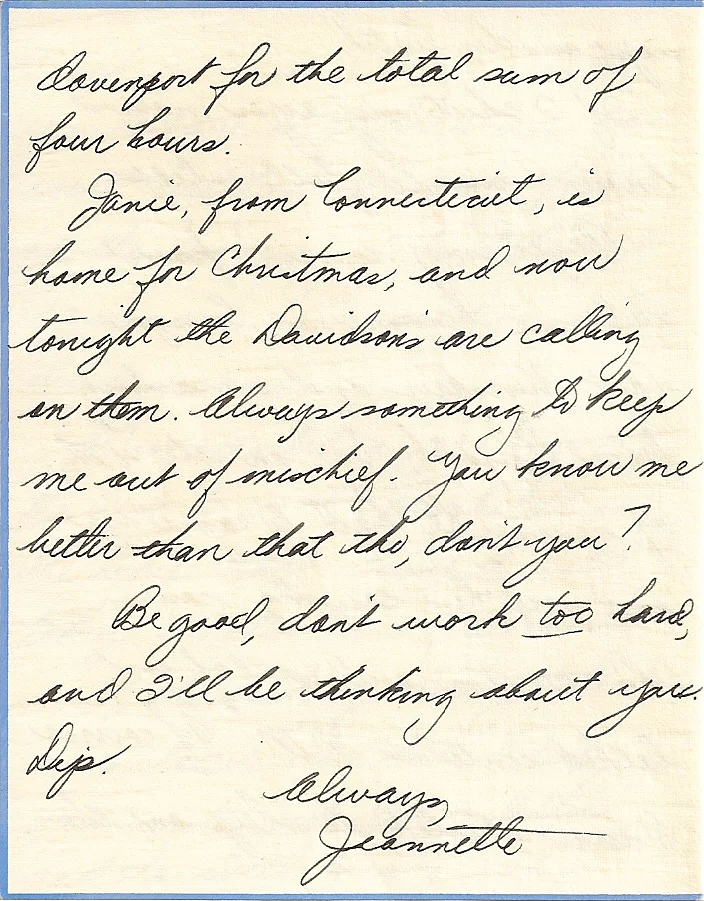 Davenport for the total sum of
four hours.
Janie, from Connecticut, is
home for Christmas, and now
tonight the Davidson's are calling
on them. Always something to keep
me out of mischief. You know me
better than that tho, don't you?
Be good, don't work too hard,
and I'll be thinking about you.
Dip.
Always,
Jeannette